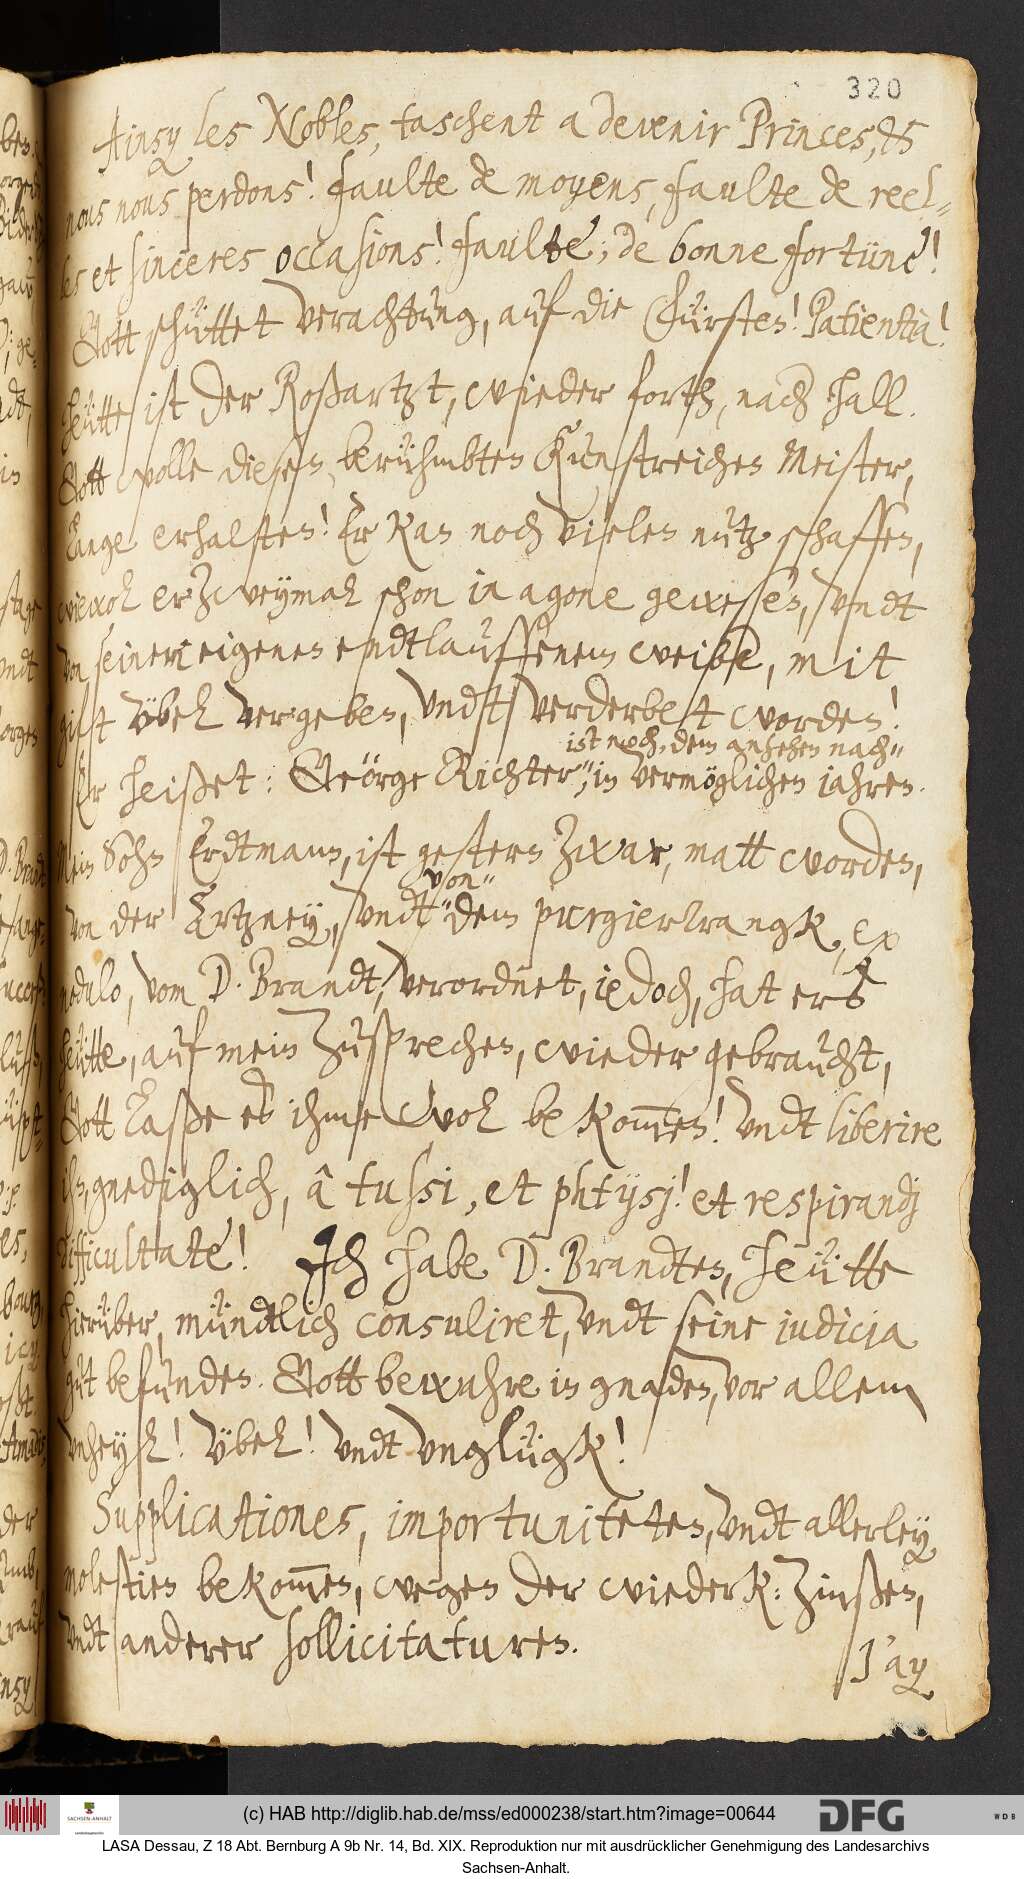 320
Ainsy les Nobles, taschent a devenir Princes, &
nous nous perdons! faulte de moyens, faulte de reel-
les et sinceres occasions! faulte, de bonne fortüne!
Gott schüttet verachtung, auf die Fürsten! Patientia!
heütte ist der Roßartzt, wieder forth, nach hall.
Gott wolle diesen, berühmbten Kunstreichen Meister,
lange erhalten! Er kan noch vielen nutz schaffen,
wiewol er zweymal schon in agone gewesen, undt
von seinem eigenen endtlauffenem weibe, mit
gift übel vergeben, undt verderbet worden!
ist noch, dem ansehen nach
Er heißet: Geörge Richter, in vermöglichen jahren.
Mein Sohn Erdtmann, ist gestern zwar, matt worden,
von
von der Artzney, undt dem purgiertrangk, ex
medulo, vom D. Brandt, verordnet, iedoch, hat ers
heütte, auf mein zusprechen, wieder gebraucht,
Gott laße es ihme wol bekom̄en! undt liberire
ihn, gnediglich, â tussi, et phtysj! et respirandj
difficultate! Ich habe D. Brandten, heütte
hierüber, mündtlich consuliret, undt seine iudicia
gut befunden. Gott bewahre in gnaden, vor allem
unheyl! übel! undt unglügk!
Supplicationes, importuniteten, undt allerley
molestien bekom̄en, wegen der wiederk: Zinßen,
undt anderer sollicitaturen.
J'ay
(c) HAB http://diglib.hab.de/mss/ed000238/start.htm?image=00644
SACHSEN-ANHALT
DFG
WDB
LASA Dessau, Z 18 Abt. Bernburg A 9b Nr. 14, Bd. XIX. Reproduktion nur mit ausdrücklicher Genehmigung des Landesarchivs
Sachsen-Anhalt.